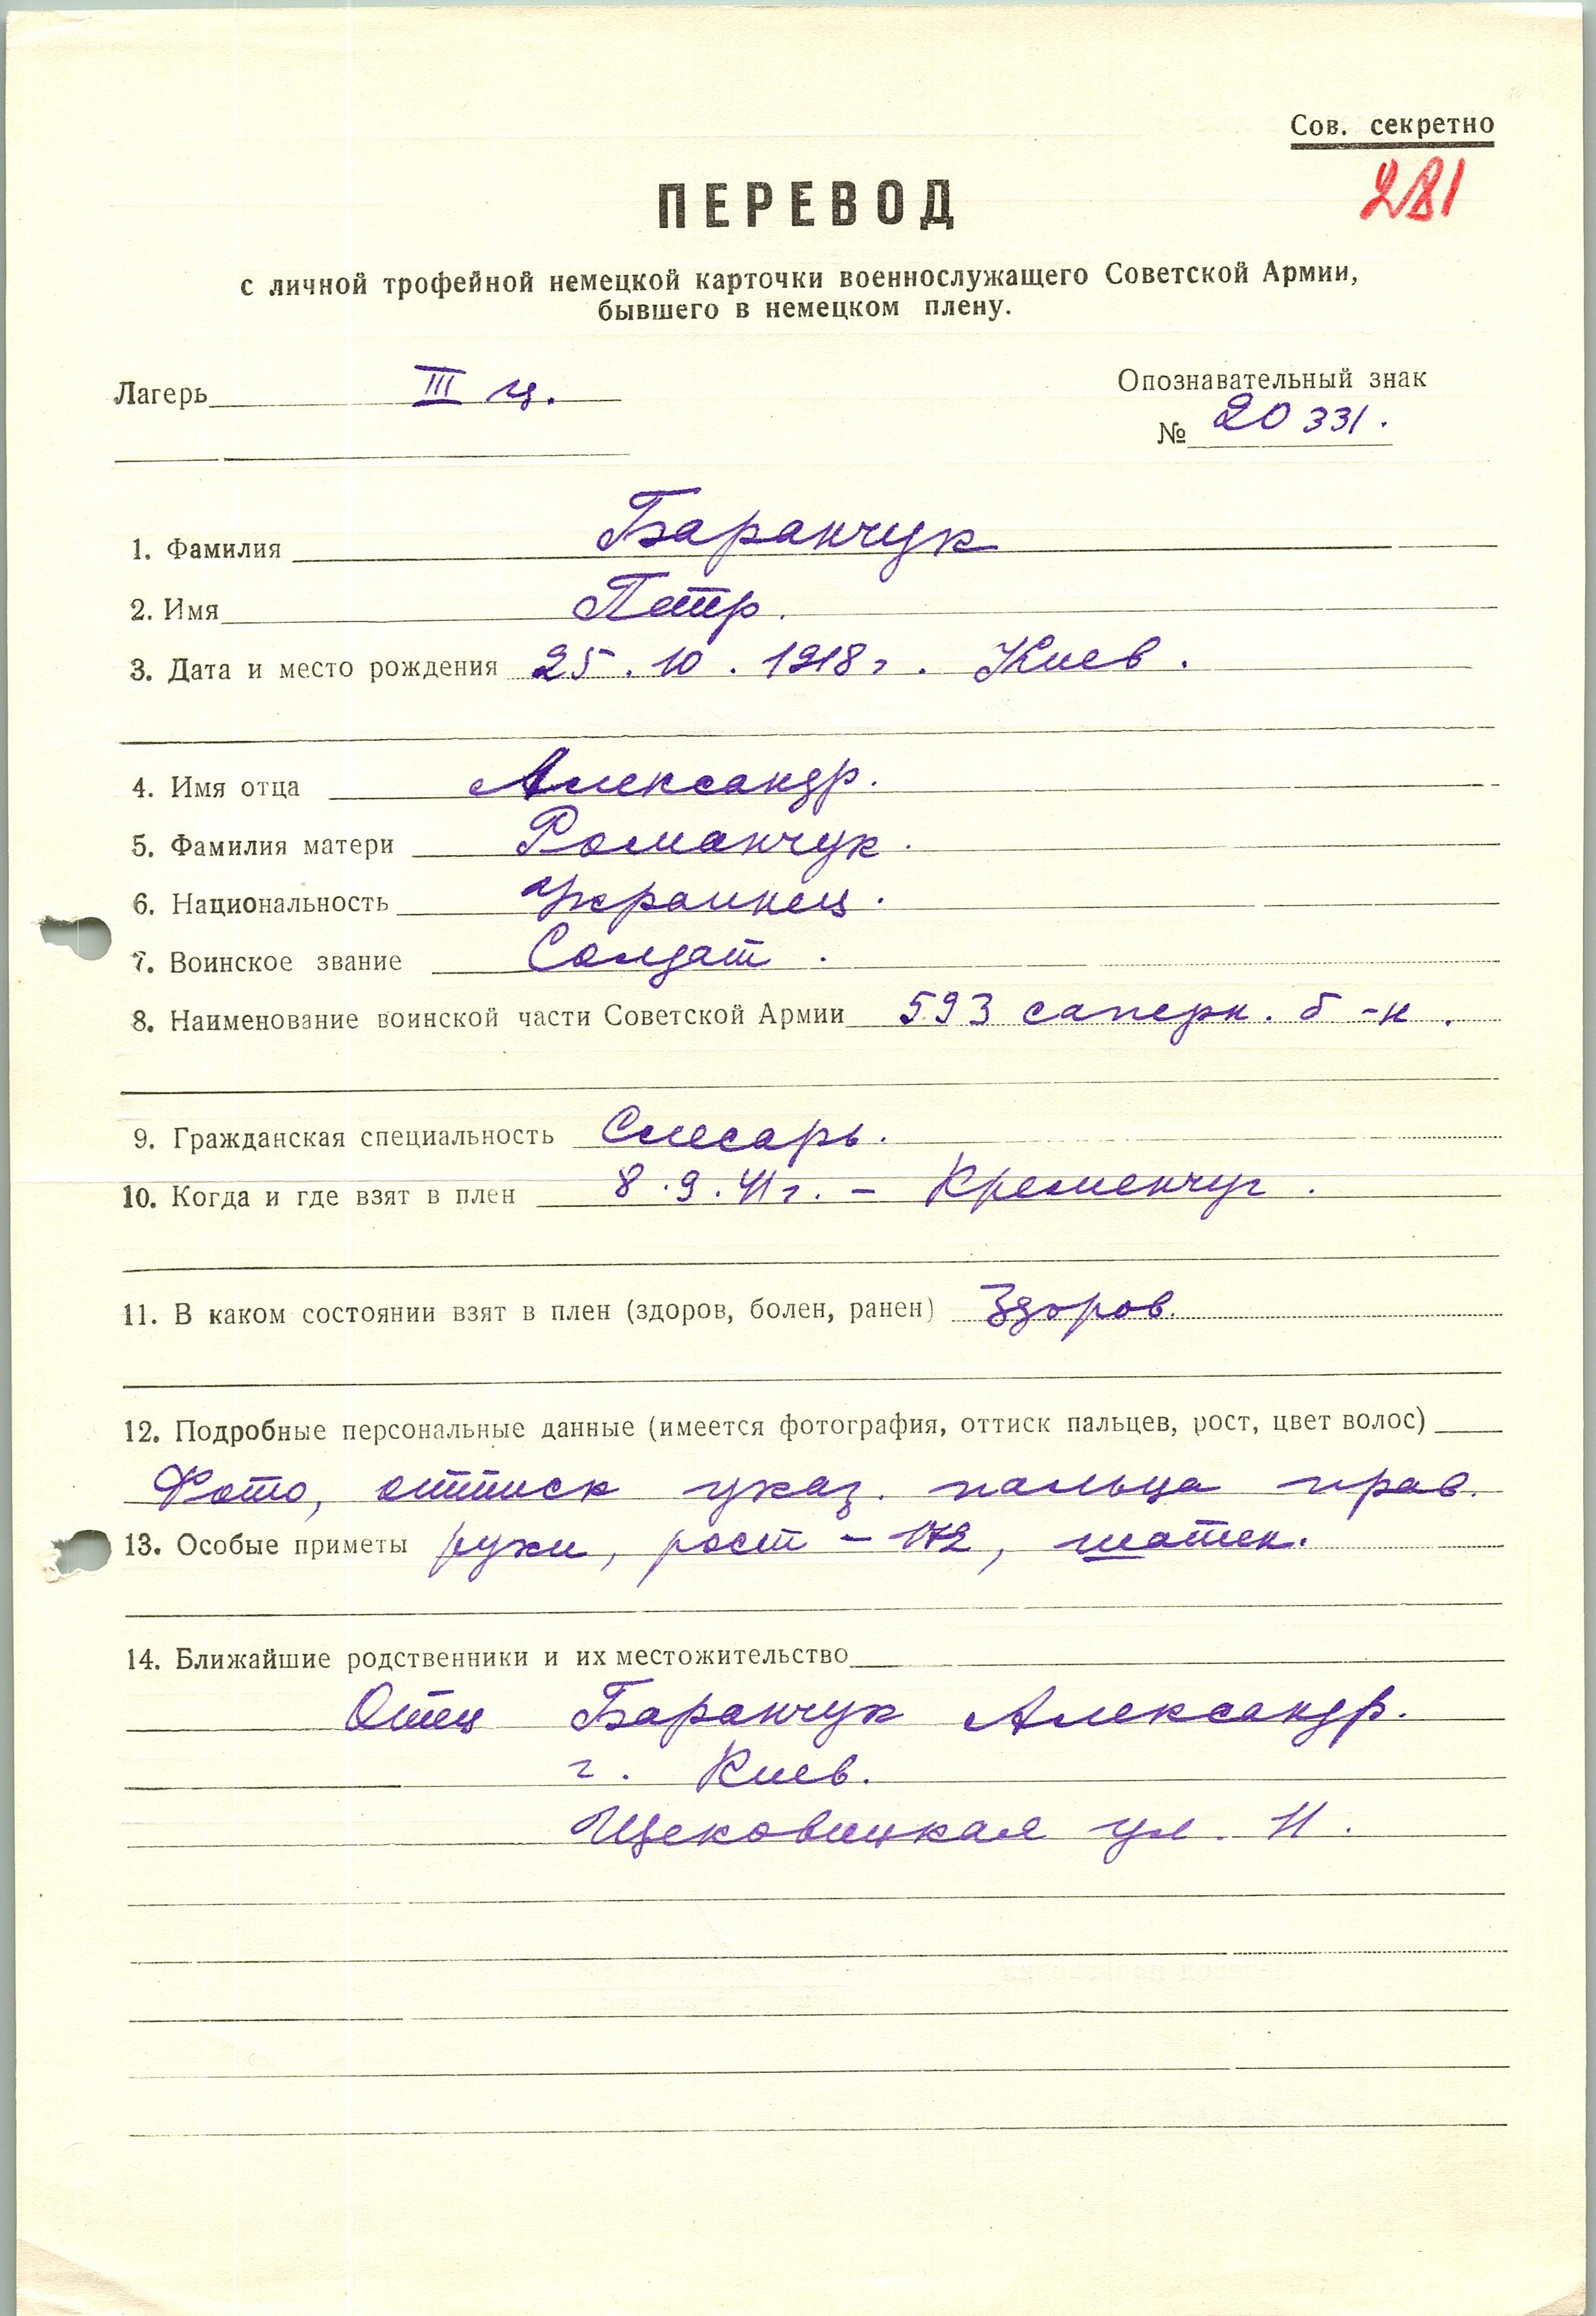 Сов. секретно
281
ПЕРЕВОД
с личной трофейной немецкой карточки военнослужащего Советской Армии,
бывшего в немецком плену.
Лагерь III ц.
Опознавательный знак
№ 20331.
1. Фамилия Баранчук
2. Имя Петр.
3. Дата и место рождения 25.10.1918г. Киев.
4. Имя отца Александр.
5. Фамилия матери Романчук.
6. Национальность Украинец.
7. Воинское звание Солдат.
8. Наименование воинской части Советской Армии 593 саперн. б-н.
9. Гражданская специальность Слесарь.
10. Когда и где взят в плен 8.9.41г. – Кременчуг.
11. В каком состоянии взят в плен (здоров, болен, ранен) Здоров.
12. Подробные персональные данные (имеется фотография, оттиск пальцев, рост, цвет волос)
Фото, оттиск указ. пальца прав.
13. Особые приметы руки, рост – 172, шатен.
14. Ближайшие родственники и их местожительство
Отец Баранчук Александр.
г. Киев.
Щековицкая ул. 11.